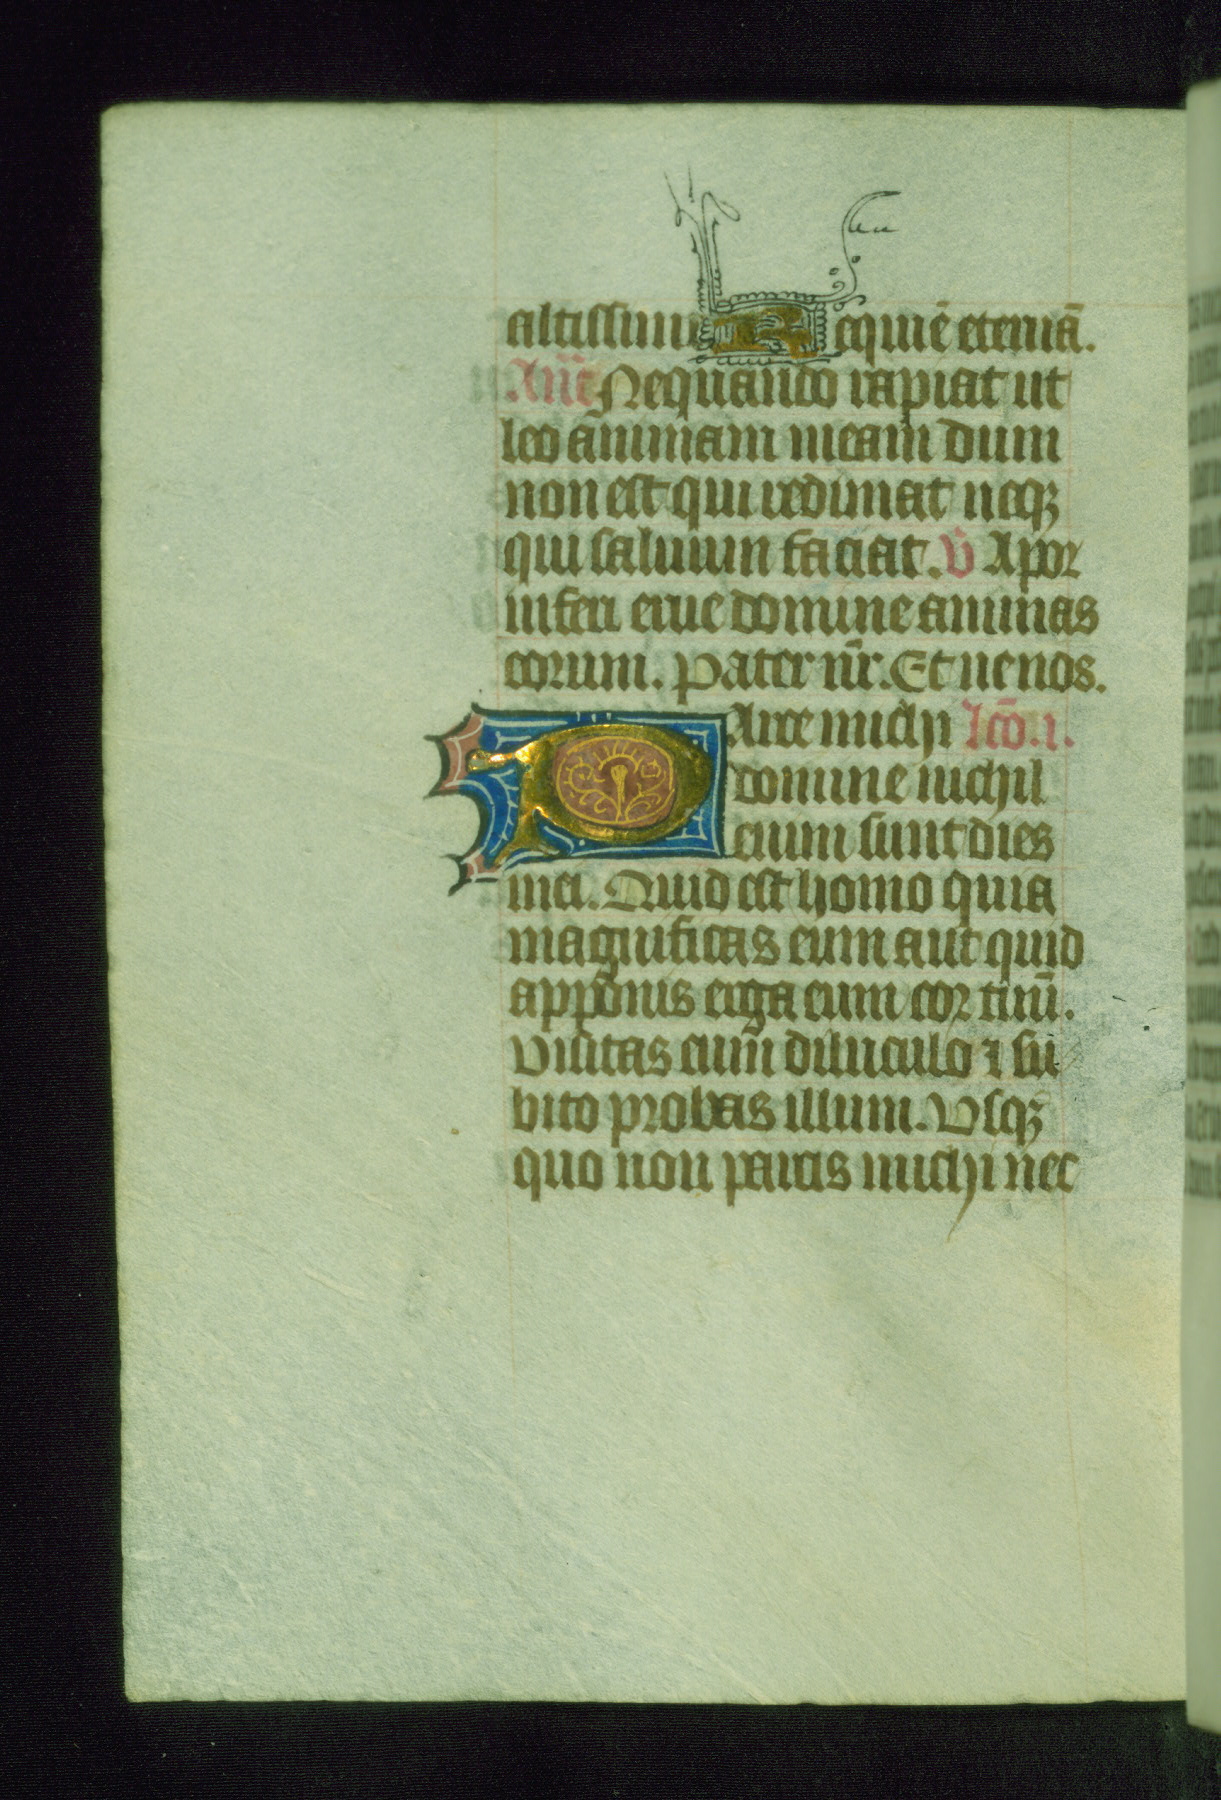 altissimi Requiē eternā.
Añt Nequando rapiat ut
leo animam meam dum
non est qui redimat neqȝ
qui saluum faciat. v̄ A por
inferi erue domine animas
eorum. Pater nr̄. Et ne nos.
Parce michi lc̄o. i.
domine nichil
enim sunt dies
mei. Quid est homo quia
magnificas eum aut quid
apponis erga eum cor tuū.
Visitas eum diluculo ⁊ su
bito probas illum. Vsqȝ
quo non parcis michi nec